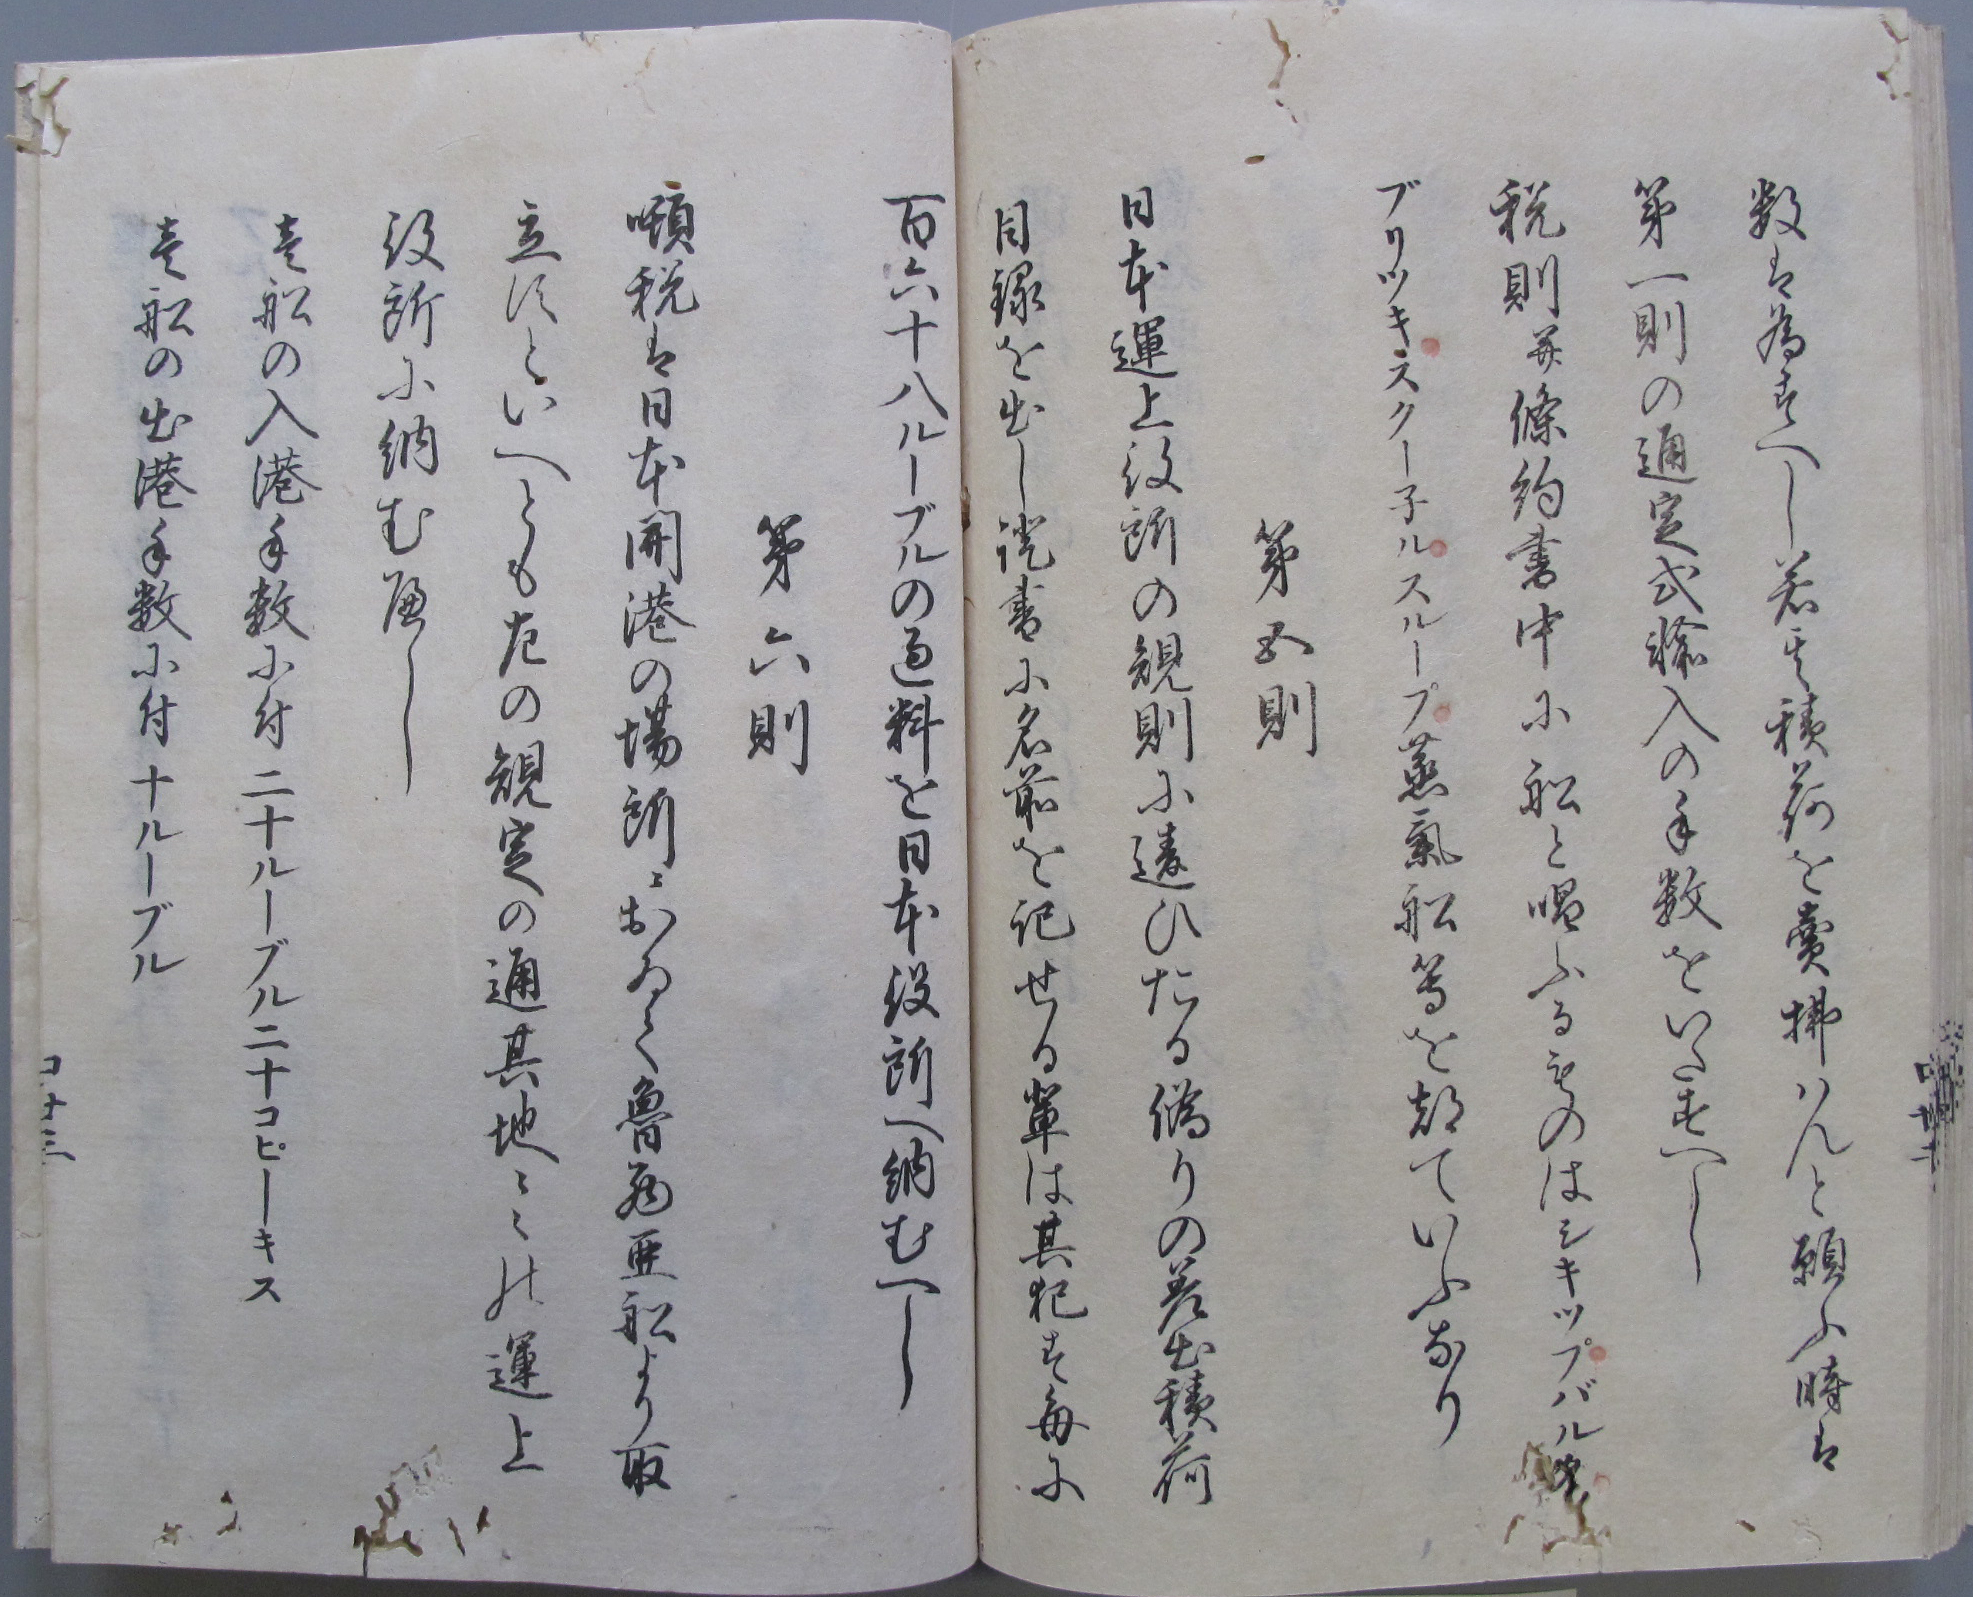 数は為すへし若其積荷を賣拂はんと願ふ時は
第一則の通定式輸入の手数をいたすへし
税則并條約書中に船と唱ふるものはシキップバルク
ブリッキスクー子ルスループ蒸氣船等を都ていふなり
第五則
日本運上役所の規則に違ひたる偽りの差出積荷
目録を出し證書に名前を記せる輩は其犯す毎に
百六十八ルーブルの過料を日本役所へ納むへし
第六則
頓税は日本開港の場所ニおゐて魯西亜船より取
立すといへとも左の規定の通其地ニての運上
役所に納む可し
壱船の入港手数に付二十ルーブル二十コピーキス
壱船の出港手数に付十ルーブル